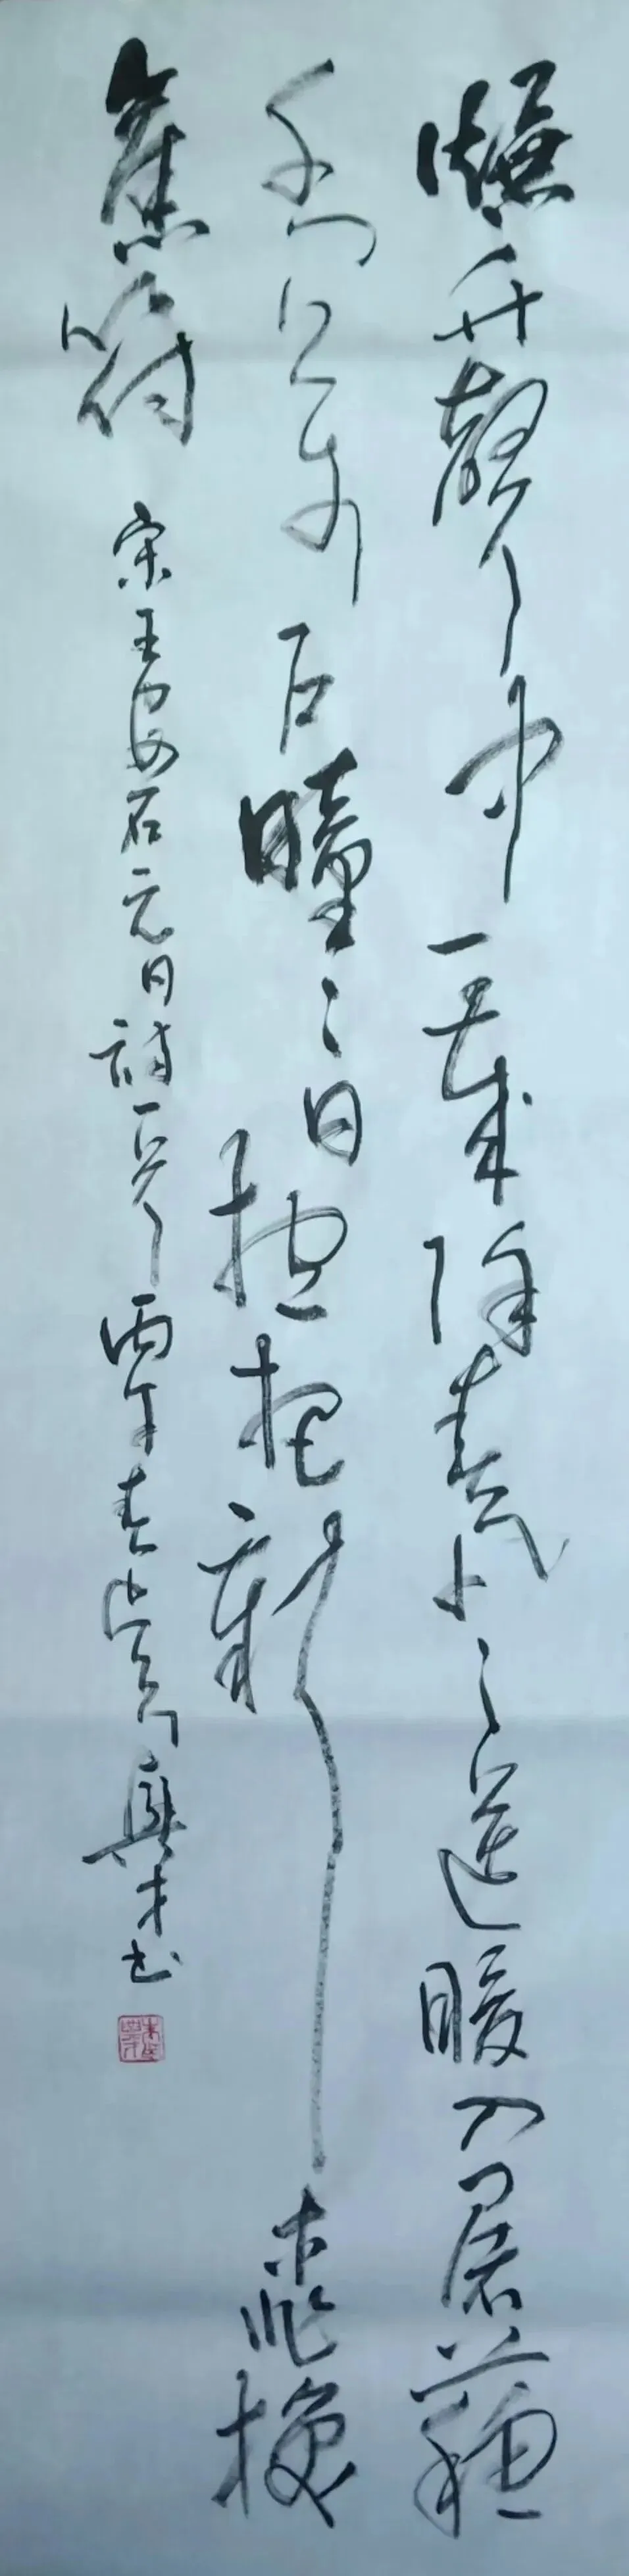 爆竹聲中一歲除春風送暖入屠蘇
千門萬戶曈々日揔把新桃換
舊符 宋王安石元日詩一首 丙午春興才书